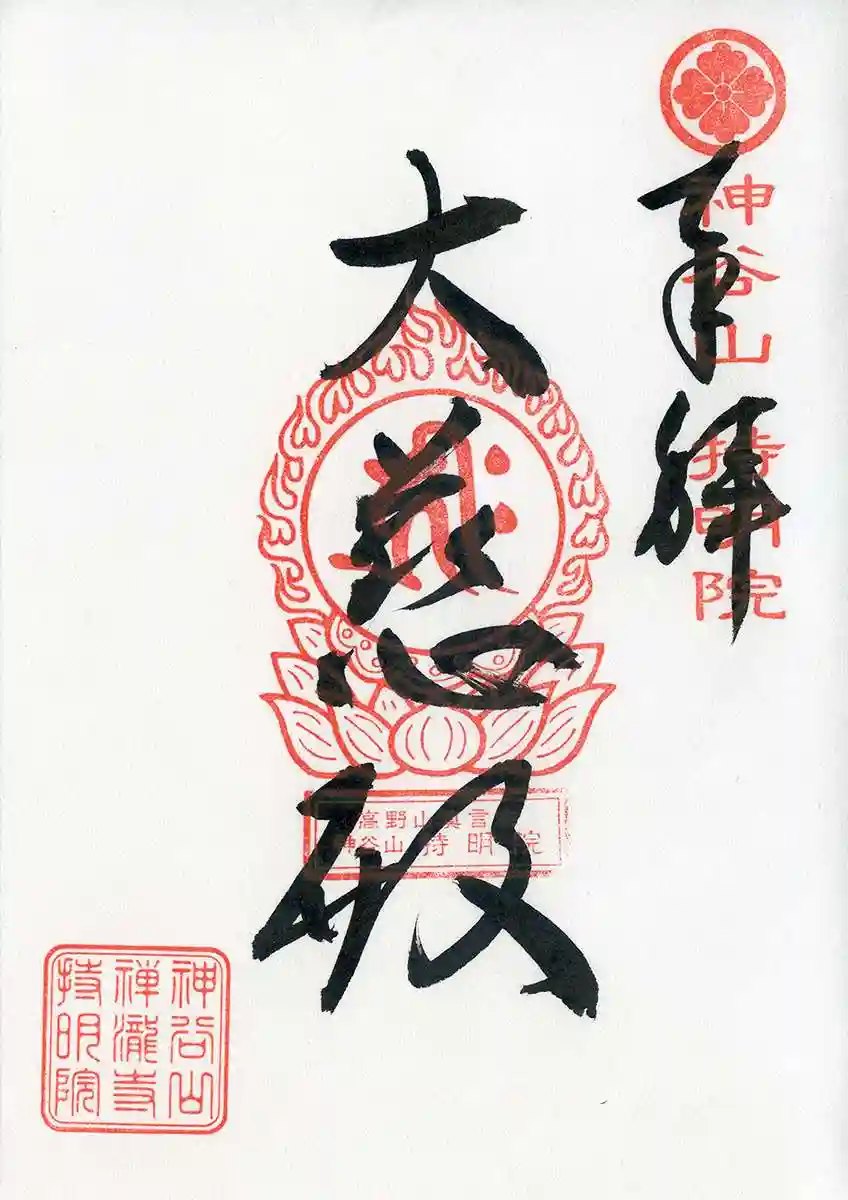 奉拝
神谷山 持明院
大慈殿
高野山真言
神谷山 持明院
神谷山
禅瀧寺
持明院